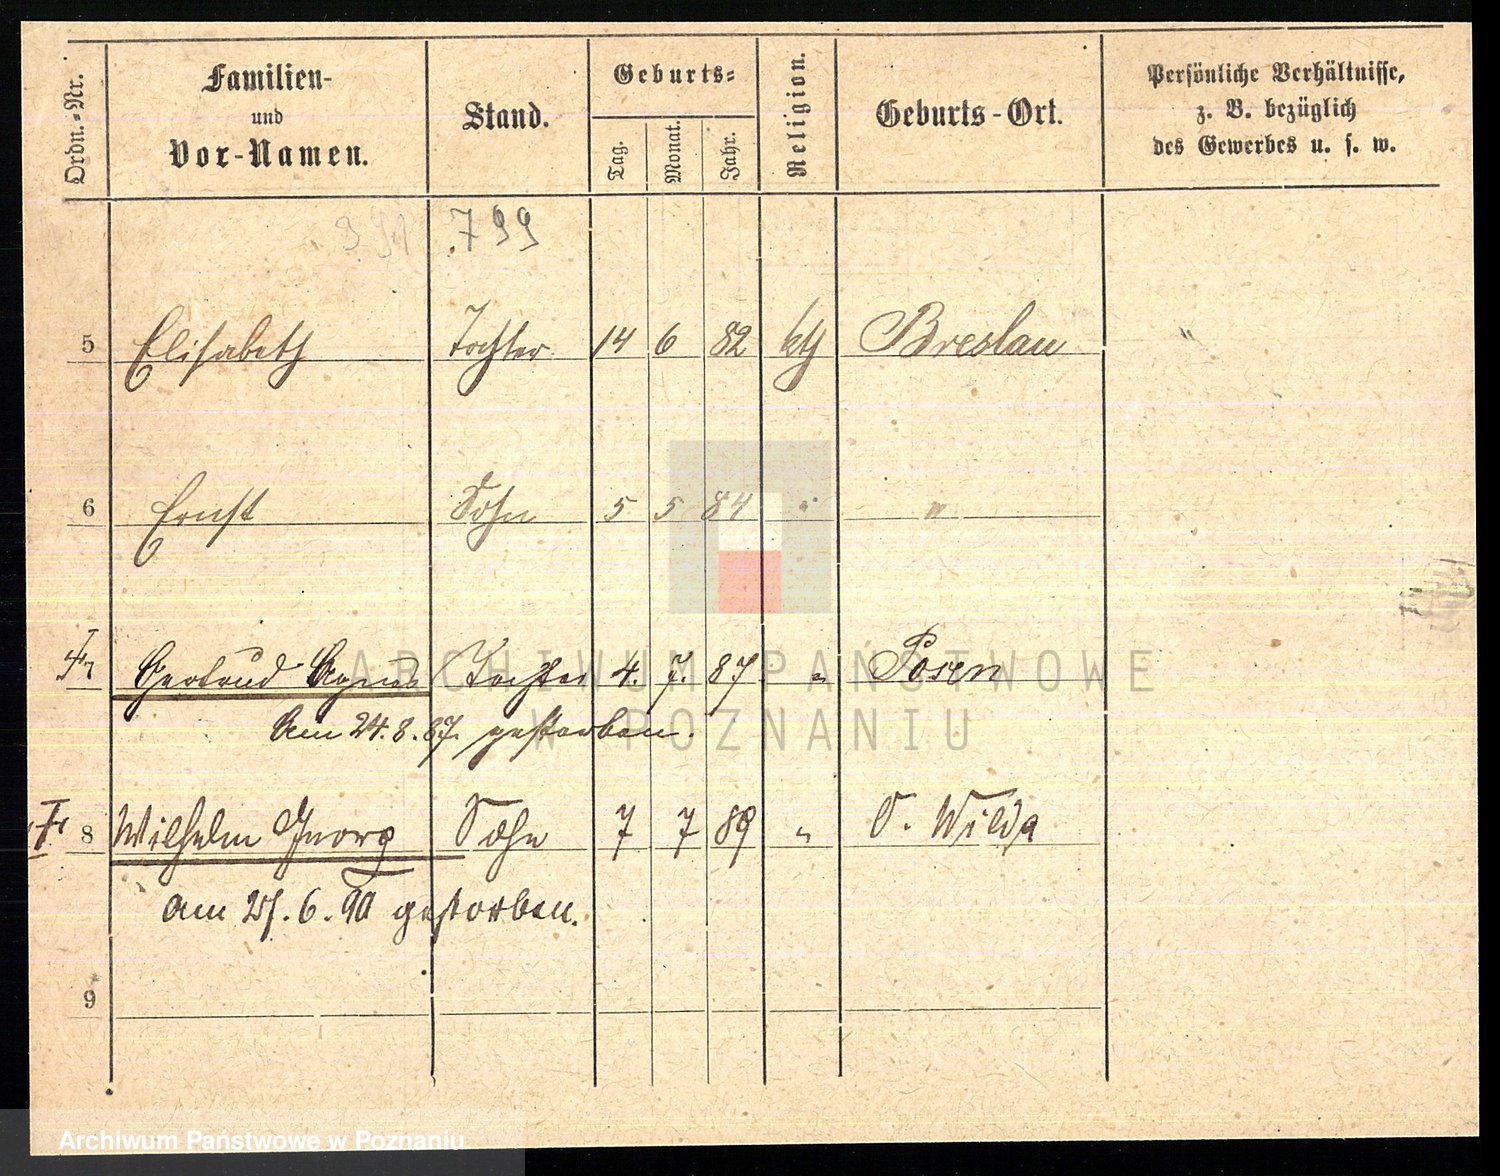 Ordn.-Nr. Familien- und Vor-Namen. Stand. Geburts- Tag. Monat. Jahr. Religion. Geburts-Ort. Persönliche Verhältnisse, z. B. bezüglich des Gewerbes u. s. w.
799
5 Elisabeth Tochter 14 6 82 kth Breslau "
6 Ernst Sohn 5 5 84 " "
7 Gertrud Agnes Tochter 4. 7. 87 " Posen
Am 24.8.87. gestorben.
8 Wilhelm Georg Sohn 7 7 89 " O. Wilda
am 25.6.90 gestorben.
9
ARCHIWUM PAŃSTWOWE
W POZNANIU
Archiwum Państwowe w Poznaniu